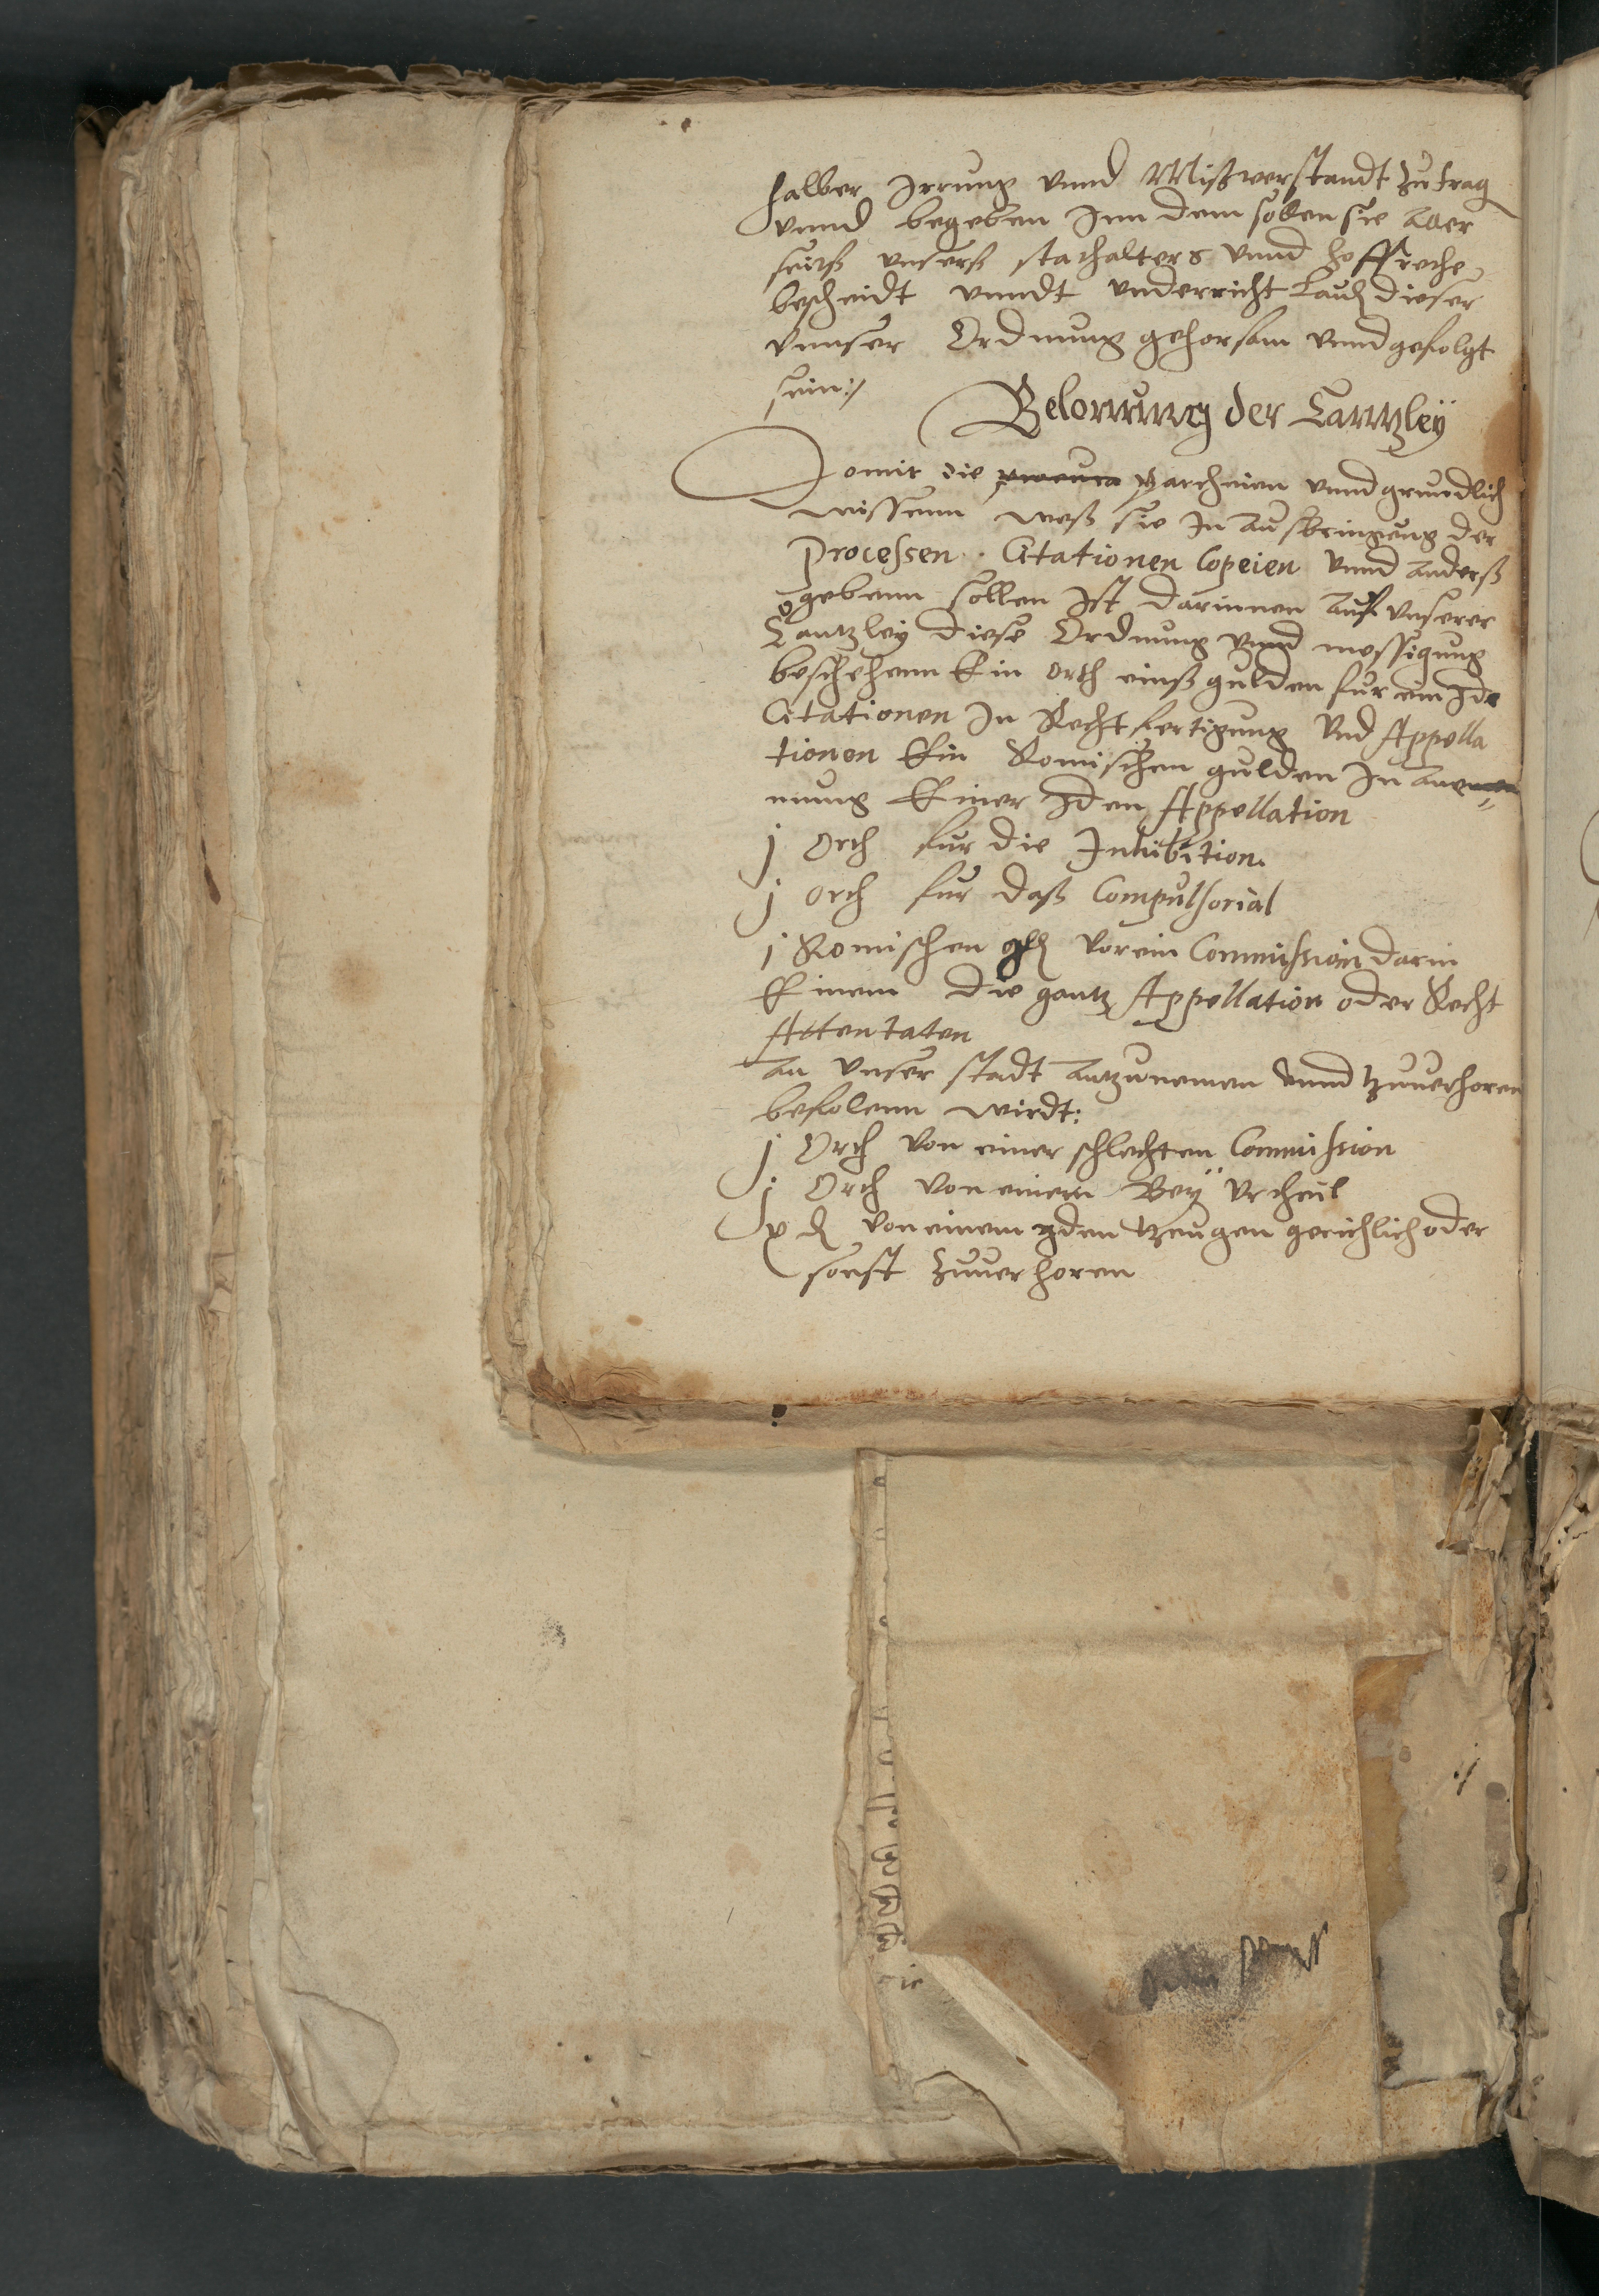 halber Irrung vnnd Mißverstandt zutrag
vnnd begeben Inn dem sollen sie aller
seitß vnserß stathalters vnnd hoffrethe
bescheidt vnndt vnderricht lauth dieser
vnnser Ordnung gehorsam vnnd gefolgt
sein:/
Belonnung der Canntzleÿ
Domit die partheien vnnd grundlich
wissenn weß sie In außbringung der
Processen. Citationen Copeien vnnd anderß
gebenn sollen Ist darinnen auf vnserer
Cantzley diese Ordnung vnnd messigung
beschehenn Ein orth einß gulden fur ein Ide
Citationen In Rechtfertigung vnd Appella
tionen Ein Romischen gulden In
mung Einer Iden Appellation
j Orth fur die Inhibition.
j orth fur daß Compulsorial
j Romischen gld vor ein Commission darin
Einem die gantz Appellation oder Recht
Attentaten
an vnser stadt antzunemen vnnd tzuuerhoren
befolenn wirdt:
j Orth von einer schlechten Commission
j Orth von einem Beÿ vrtheil
x d von einem yden tzeugen gerichlich oder
sonst zuuerhoren